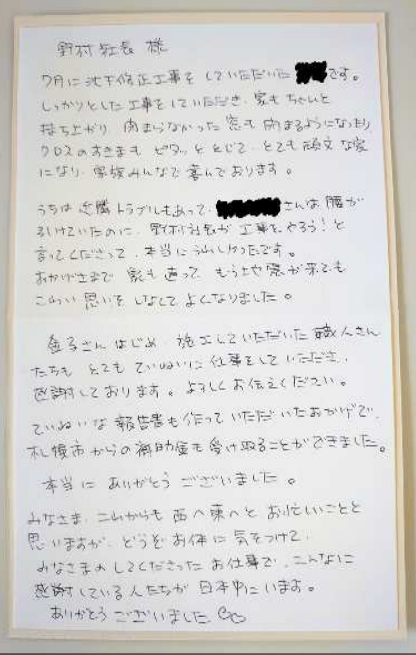 野村社長 様
7月に沈下修正工事をしていただいた です。
しっかりとした工事をしていただき、家もちゃんと
持ち上がり 閉まらなかった窓も閉まるようになったり
クロスのすきまも ピタッととじて、とても頑丈な家
になり、家族みんなで喜んでおります。
うちは近隣トラブルもあって、 さんは腰が
引けていたのに、野村社長が工事をやろう!と
言ってくださって、本当にうれしかったです。
おかげさまで 家も直って もう土や雪が来ても
こわい思いをしなくてよくなりました。
金子さんはじめ 施工していただいた職人さん
たちも とてもていねいに仕事をしていただき、
感謝しております。よろしくお伝えください。
ていねいな報告書も作っていただいたおかげで、
札幌市からの補助金も受け取ることができました。
本当に ありがとうございました。
みなさま、これからも西へ東へと お忙しいことと
思いますが、どうぞお体に気をつけて、
みなさまのしてくださったお仕事で、こんなに
感謝している人たちが 日本中にいます。
ありがとうございました